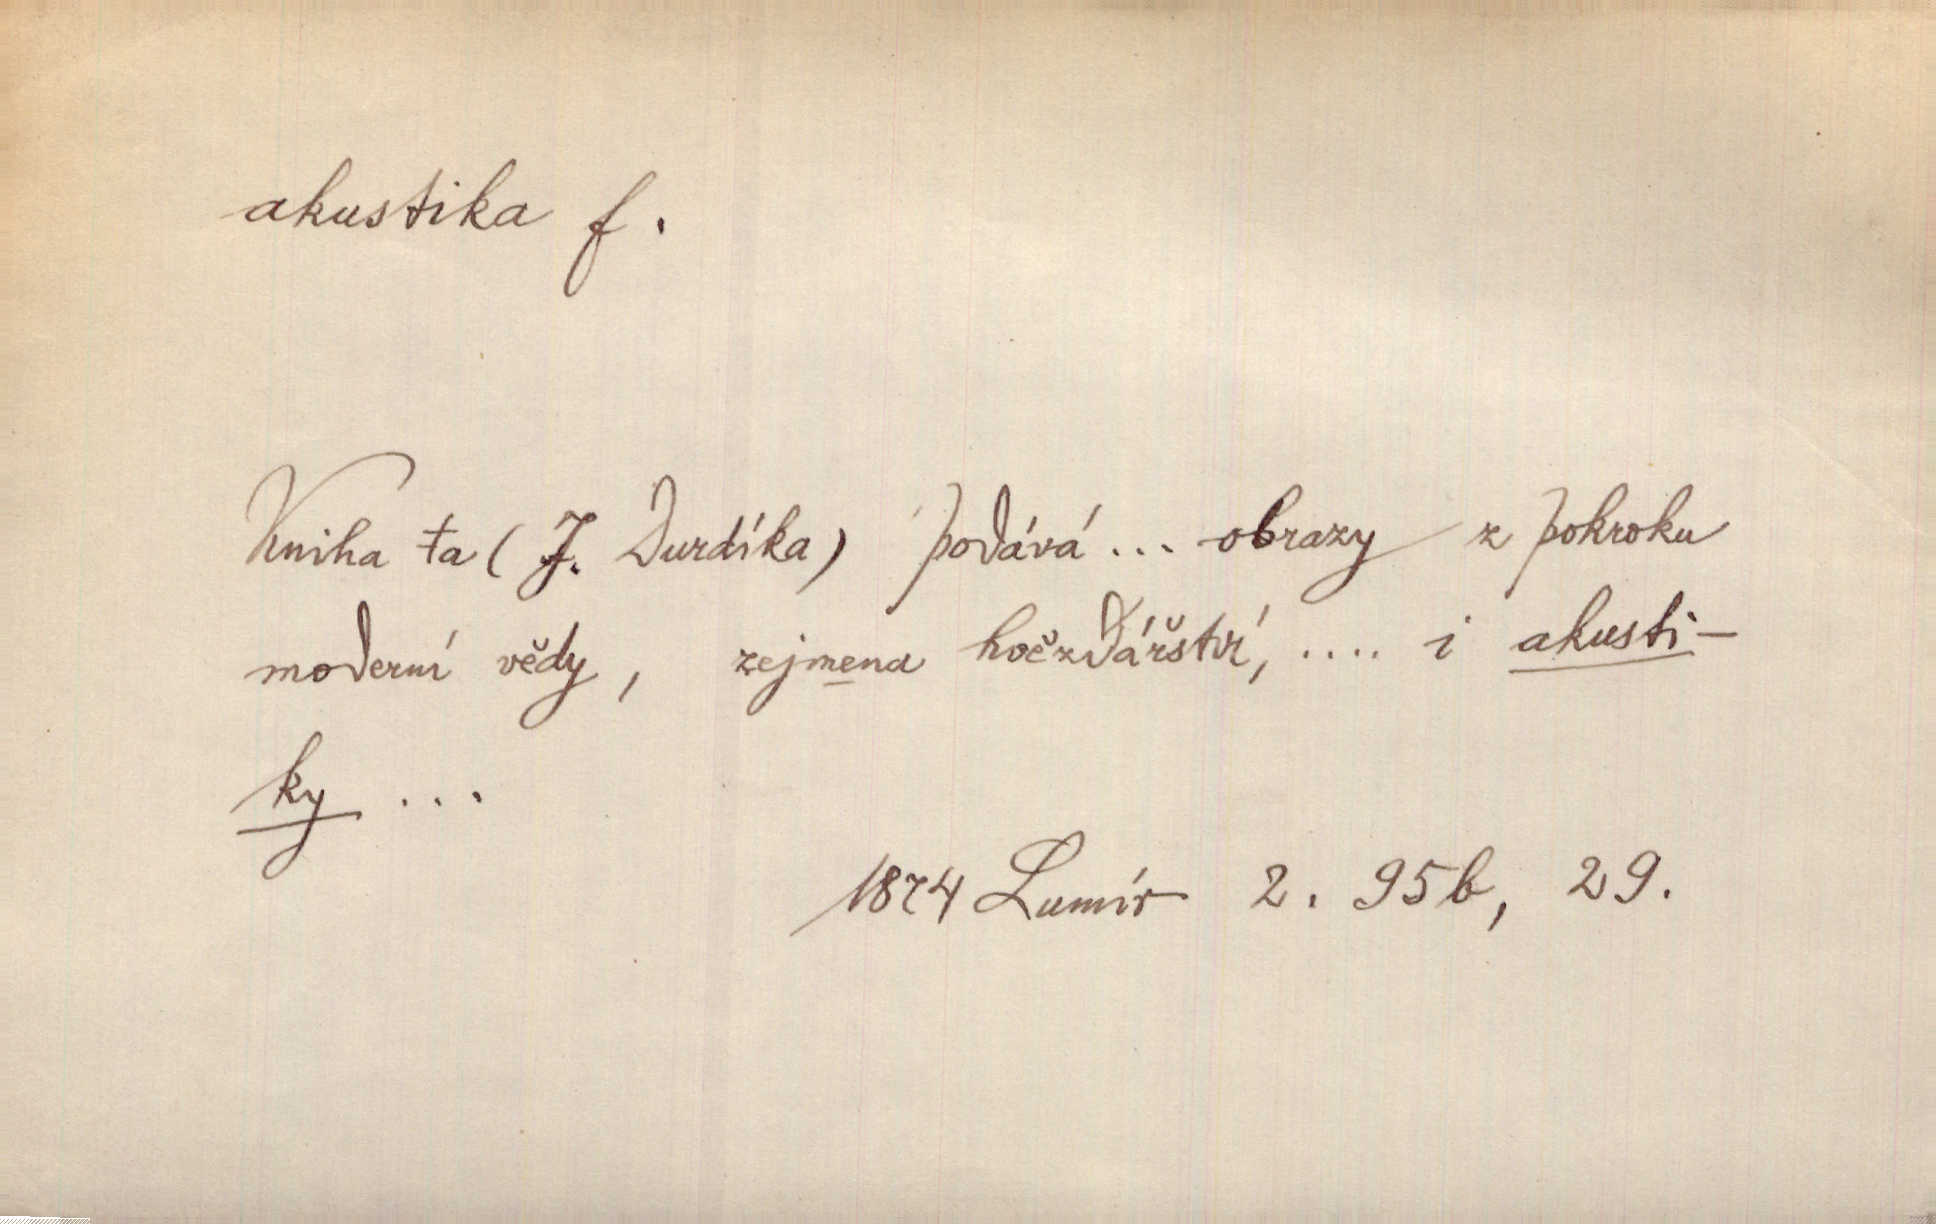 akustika f.
Kniha ta (J. Durdíka) podává... obrazy z pokroku
moderní vědy, zejmena hvězdářství, .... i akusti-
ky ...
1874 Lumír 2. 95b, 29.